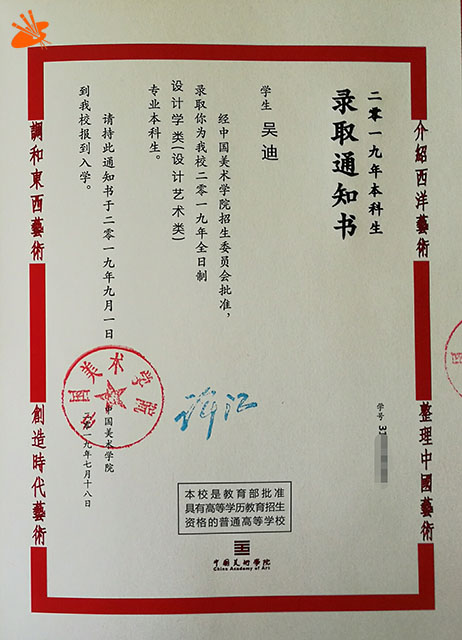 介紹西洋藝術
整理中國藝術
二零一九年本科生
录取通知书
学号 3
学生 吴迪
经中国美术学院招生委员会批准，
录取你为我校二零一九年全日制
设计学类(设计艺术类)
专业本科生。
请持此通知书于二零一九年九月一日
到我校报到入学。
中国美术学院
二零一九年七月十八日
中国美术学院
本校是教育部批准
具有高等学历教育招生
资格的普通高等学校
中國美術學院
China Academy of Art
調和東西藝術
創造時代藝術